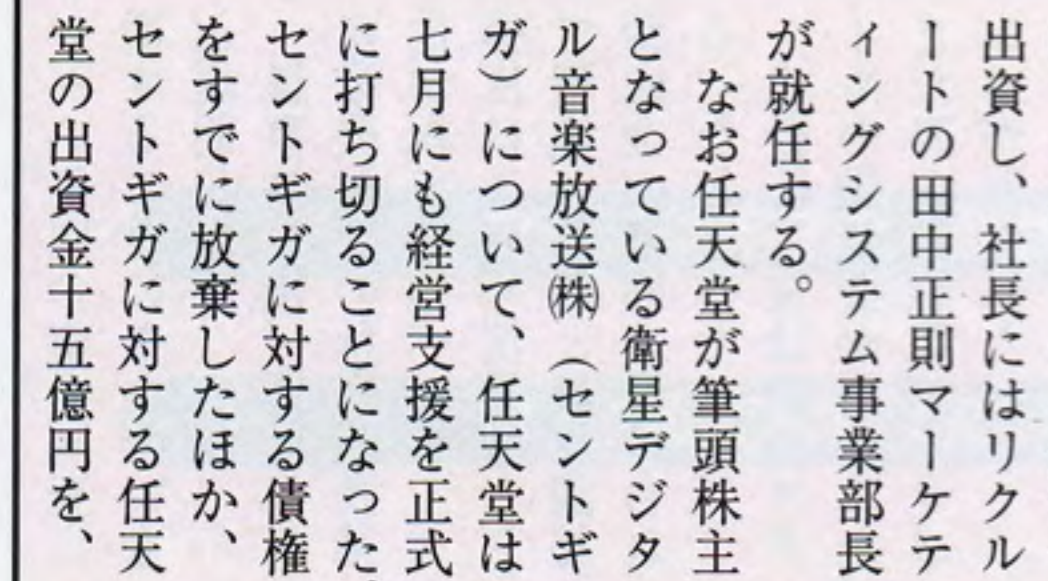 出資し、社長にはリクル
ートの田中正則マーケテ
ィングシステム事業部長
が就任する。
なお任天堂が筆頭株主
となっている衛星デジタ
ル音楽放送㈱（セントギ
ガ）について、任天堂は
七月にも経営支援を正式
に打ち切ることになった。
セントギガに対する債権
をすでに放棄したほか、
セントギガに対する任天
堂の出資金十五億円を、